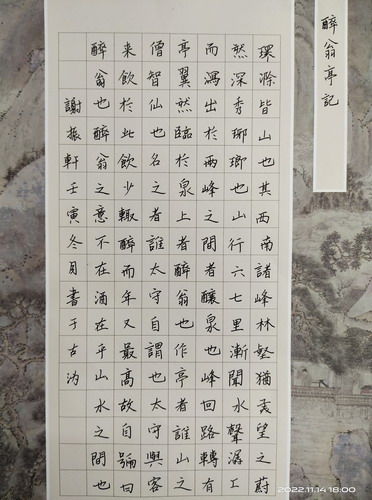 醉翁亭記
環滁皆山也其西南諸峰林壑猶美望之蔚
然深秀瑯瑯也山行六七里漸聞水聲潺工
而瀉出於兩峰之間者釀泉也峰回路轉有
亭翼然臨於泉上者醉翁也作亭者誰山之
僧智仙也名之者誰太守自謂也太守與客
来飲於此飲少輒醉而年又最高故自號曰
醉翁也醉翁之意不在酒在乎山水之間也
謝振軒壬寅冬月書于古沩
2022.11.14 18:00